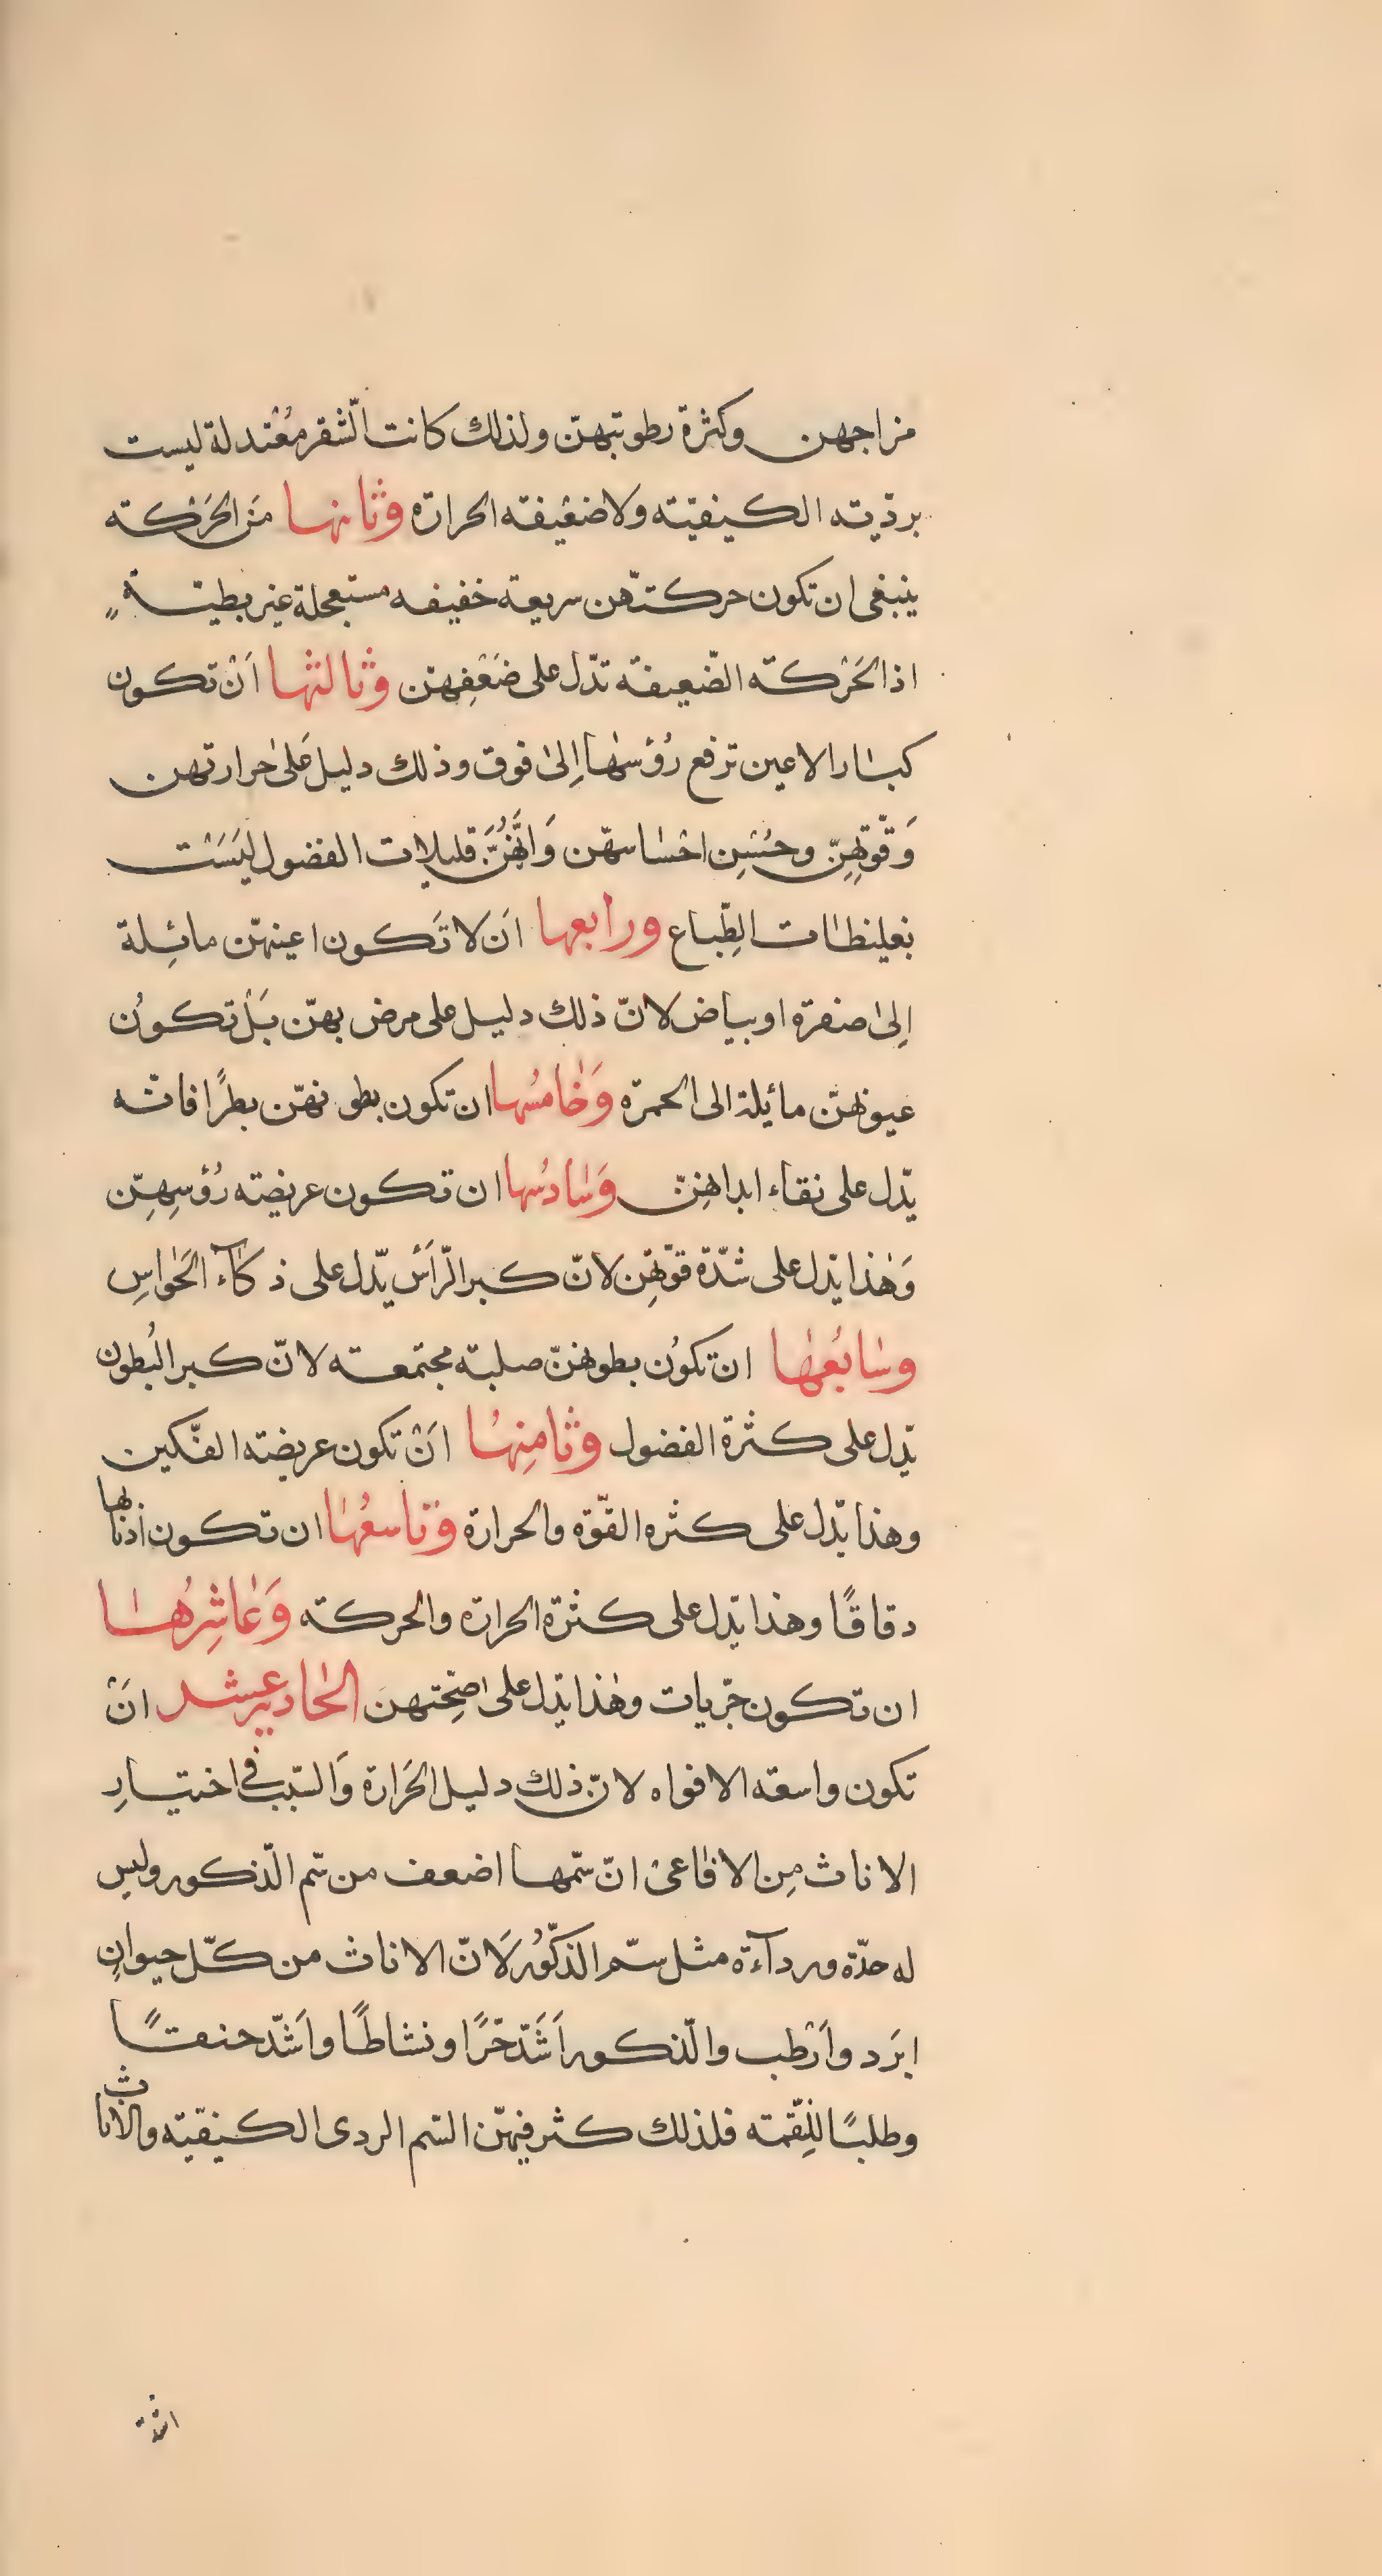 مزاجهن وكثرة رطوبتهنّ ولذلك كانت الّشقر مُعْتدلة ليست
برديّته الكيفيّته ولا ضعْيفته الحرارّه وثانيها مَن الحَرْكته
ينبغى ان تكون حركتهّن سريعة خفيفه مستعجلة غير بطيئة
اذا الحَرْكته الضّعيفته تدّل على ضَعْفِهنّ وثالثها اَنْ تكون
كبٰار الاعين ترفع رُؤسهٰا اِلىٰ فوق وذلك دليل عَلىٰ حرارتهن
وَقوّتهِنّ وحُسْنِ احْسٰاسهّن وَانَّهُنَّ قليلات الفضول ليَسَتْ
بغليظٰات الطِّباع ورابعها اَن لا تَكون اعينهّن مائِلة
اِلىٰ صفرة او بياض لانّ ذلك دليل على مرض بهنّ بَلْ تكونُ
عيونهنّ مائيلة الى الحمرّه وَخٰامسُها ان تكون بطونهّن بطرًا فانّه
يدّل على نقاء ابدانهِنّ وَسٰادسُها ان تكون عريضته رُؤسِهِنّ
وَهٰذا يدّل على شدّة قوّتهِنّ لانّ كبر الرّاَسْ يدّل على ذكٰآء الحَوٰاسِ
وسٰابُعهٰا ان تكونُ بطونهنّ صلبته مجتمعته لانّ كبر البُطون
يدّل على كثرة الفضول وثامِنهُا اَنْ تكون عريضته الفّكين
وهذا يدّل على كثره القوّه والحرارة وَتاسعُهٰا ان تكون اذنابها
دقاقًا وهذا يدّل على كثرة الحرارّه والحركته وَعٰاشِرُهٰا
ان تكون جّريات وهٰذا يدّل على صِحّتهنَ الحٰادير عشر انَْ
تكون واسعته الافواه لانّ ذلك دليل الحَرارة وَالسّبب فى اختيارِ
الاناث مِن الافٰاعىْ انّ سّمها اضعف من سّم الّذكور وليس
له حدّة وردآءة مثل سّم الذكّوُر لَانّ الاناث من كّل حيوانٍ
ابرَد واَرْطب والّذكور اَشَدّ حّرًا ونشاطًا واَشّد حنقًا
وطلبًا للنّقِمته فلذلك كثر فيهّن السّم الردى الكيفيّته والاناث